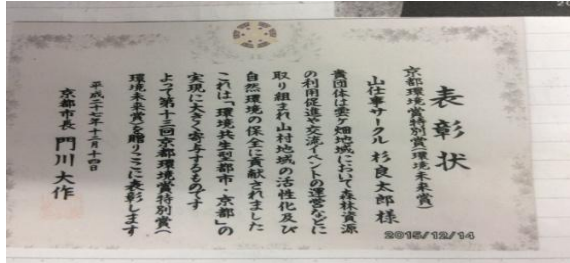 表彰状
京都環境賞特別賞(環境未来賞)
山仕事サークル 杉良太郎 様
貴団体は雲ヶ畑地域において森林資源
の利用促進や交流イベントの運営などに
取り組まれ山村地域の活性化及び
自然環境の保全に貢献されました
これは「環境共生型都市・京都」の
実現に大きく寄与するものです
よって第十三回京都環境賞特別賞(
環境未来賞)を贈りここに表彰します
平成二十七年十二月十四日
京都市長 門川大作
2015/12/14